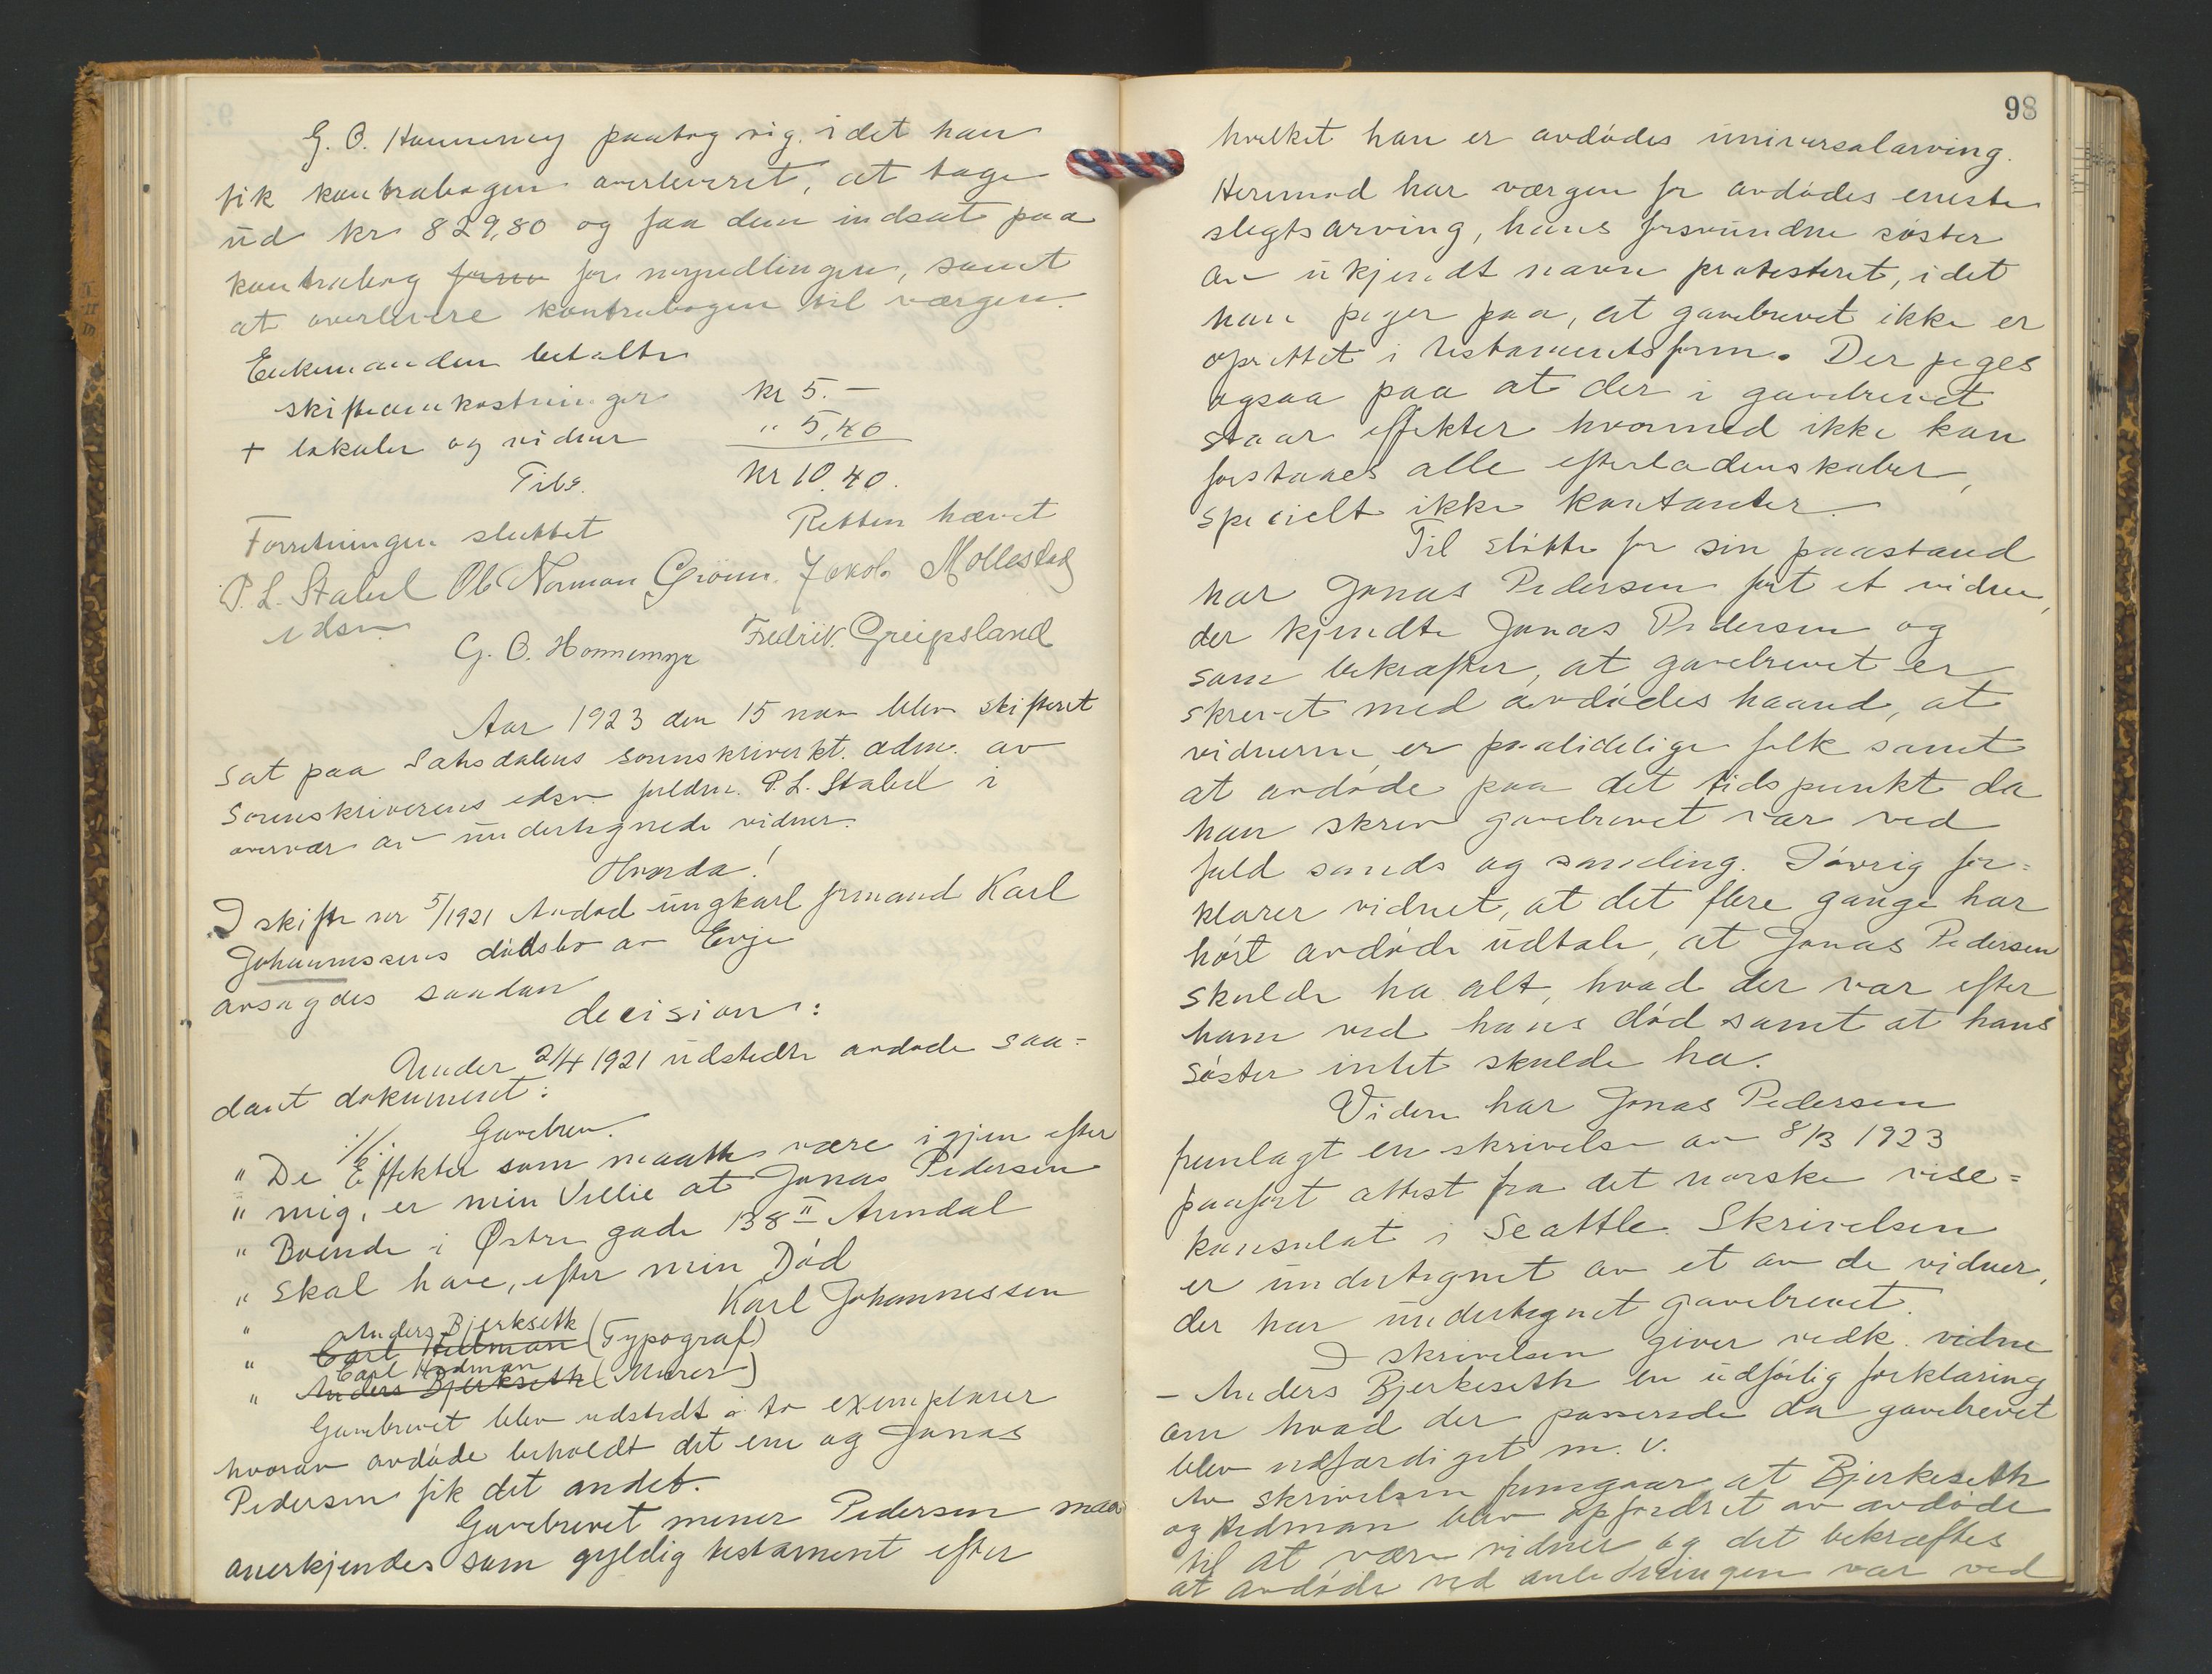 G. O. Honnemyr paatog sig, idet han
fik kontrabogen overleveret, at tage
ud kr 829,80 og faa dem indsat paa
kontrabog for myndlingen, samt
at overlevere kontrabogen til værgen.
Enkemanden betalte
skifteomkostninger kr 5.—
+ lokaler og vidner " 5,40
Tils. kr 10.40.
Forretningen sluttet Retten hævet
P. L. Stabel Ole Norman Grönn. Jakob Mollestad
edsv. G. O. Honnemyr Fredrik Greipsland
Aar 1923 den 15 nov blev skifteret
sat paa Sætesdalens sorenskriverkt. adm. av
sorenskriverens edsv. fuldm. P. L. Stabel i
overvær av undertegnede vidner.
Hvorda!
I skifte nr 5/1921 Avdød ungkarl formand Karl
Johannessens dødsbo av Evje
avsagdes saadan
decision:
Under 2/4 1921 udstedte avdøde saa=
dant dokument:
·/· Gavebrev.
" De Effekter som maatte være igjen efter
" mig, er min Villie at Jonas Pedersen
" Boende i Østre gade 138 II Arendal
" skal have, efter min Død
" Karl Johannessen
Anders Bjerkseth
" Carl Hedman (Typograf)
Carl Hedman
" Anders Bjerkseth (Murer)
Gavebrevet blev udstedt i to exemplarer
hvorav avdøde beholdt det ene og Jonas
Pedersen fik det andet.
Gavebrevet mener Pedersen maa
anerkjendes som gyldig testament efter
98
hvilket han er avdødes universalarving.
Herimod har værgen for avdødes eneste
slegtsarving, hans forsvundne søster
av ukjendt navn protesteret, idet
han peger paa, at gavebrevet ikke er
oprettet i testamentsform. Der peges
ogsaa paa at der i gavebrevet
staar effekter hvormed ikke kan
forstaaes alle efterladenskaber,
specielt ikke kontanter.
Til støtte for sin paastand
har Jonas Pedersen ført et vidne,
der kjendte Jonas Pedersen og
som bekræfter, at gavebrevet er
skrevet med avdødes haand, at
vidnerne er paalidelige folk samt
at avdøde paa det tidspunkt da
han skrev gavebrevet var ved
fuld sands og samling. Iøvrig for=
klarer vidnet, at det flere gange har
hørt avdøde udtale, at Jonas Pedersen
skulde ha alt, hvad der var efter
ham ved hans død samt at hans
søster intet skulde ha.
Videre har Jonas Pedersen
fremlagt en skrivelse av 8/3 1923
paaført attest fra det norske vise=
konsulat i Seattle. Skrivelsen
er undertegnet av et av de vidner,
der har undertegnet gavebrevet.
I skrivelsen giver vedk. vidne
— Anders Bjerkeseth en udførlig forklaring
om hvad der passerede da gavebrevet
blev udfærdiget m. v.
Av skrivelsen fremgaar at Bjerkeseth
og Hedman blev opfordret av avdøde
til at være vidner og det bekræftes
at avdøde ved anledningen var ved